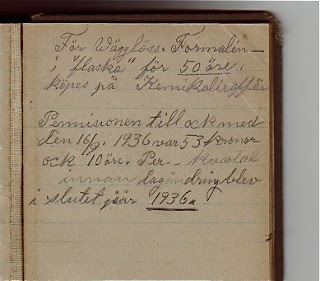 För Wägglöss. Formalin—
i "flaska" för 50 öre.
köpes på Kemikalieaffär
Pennisionen till ock med
den 16/9. 1936 var 53 kronor
ock 10 öre. Per.- Kvartal
innan lagändring blev
i slutet på år 1936.